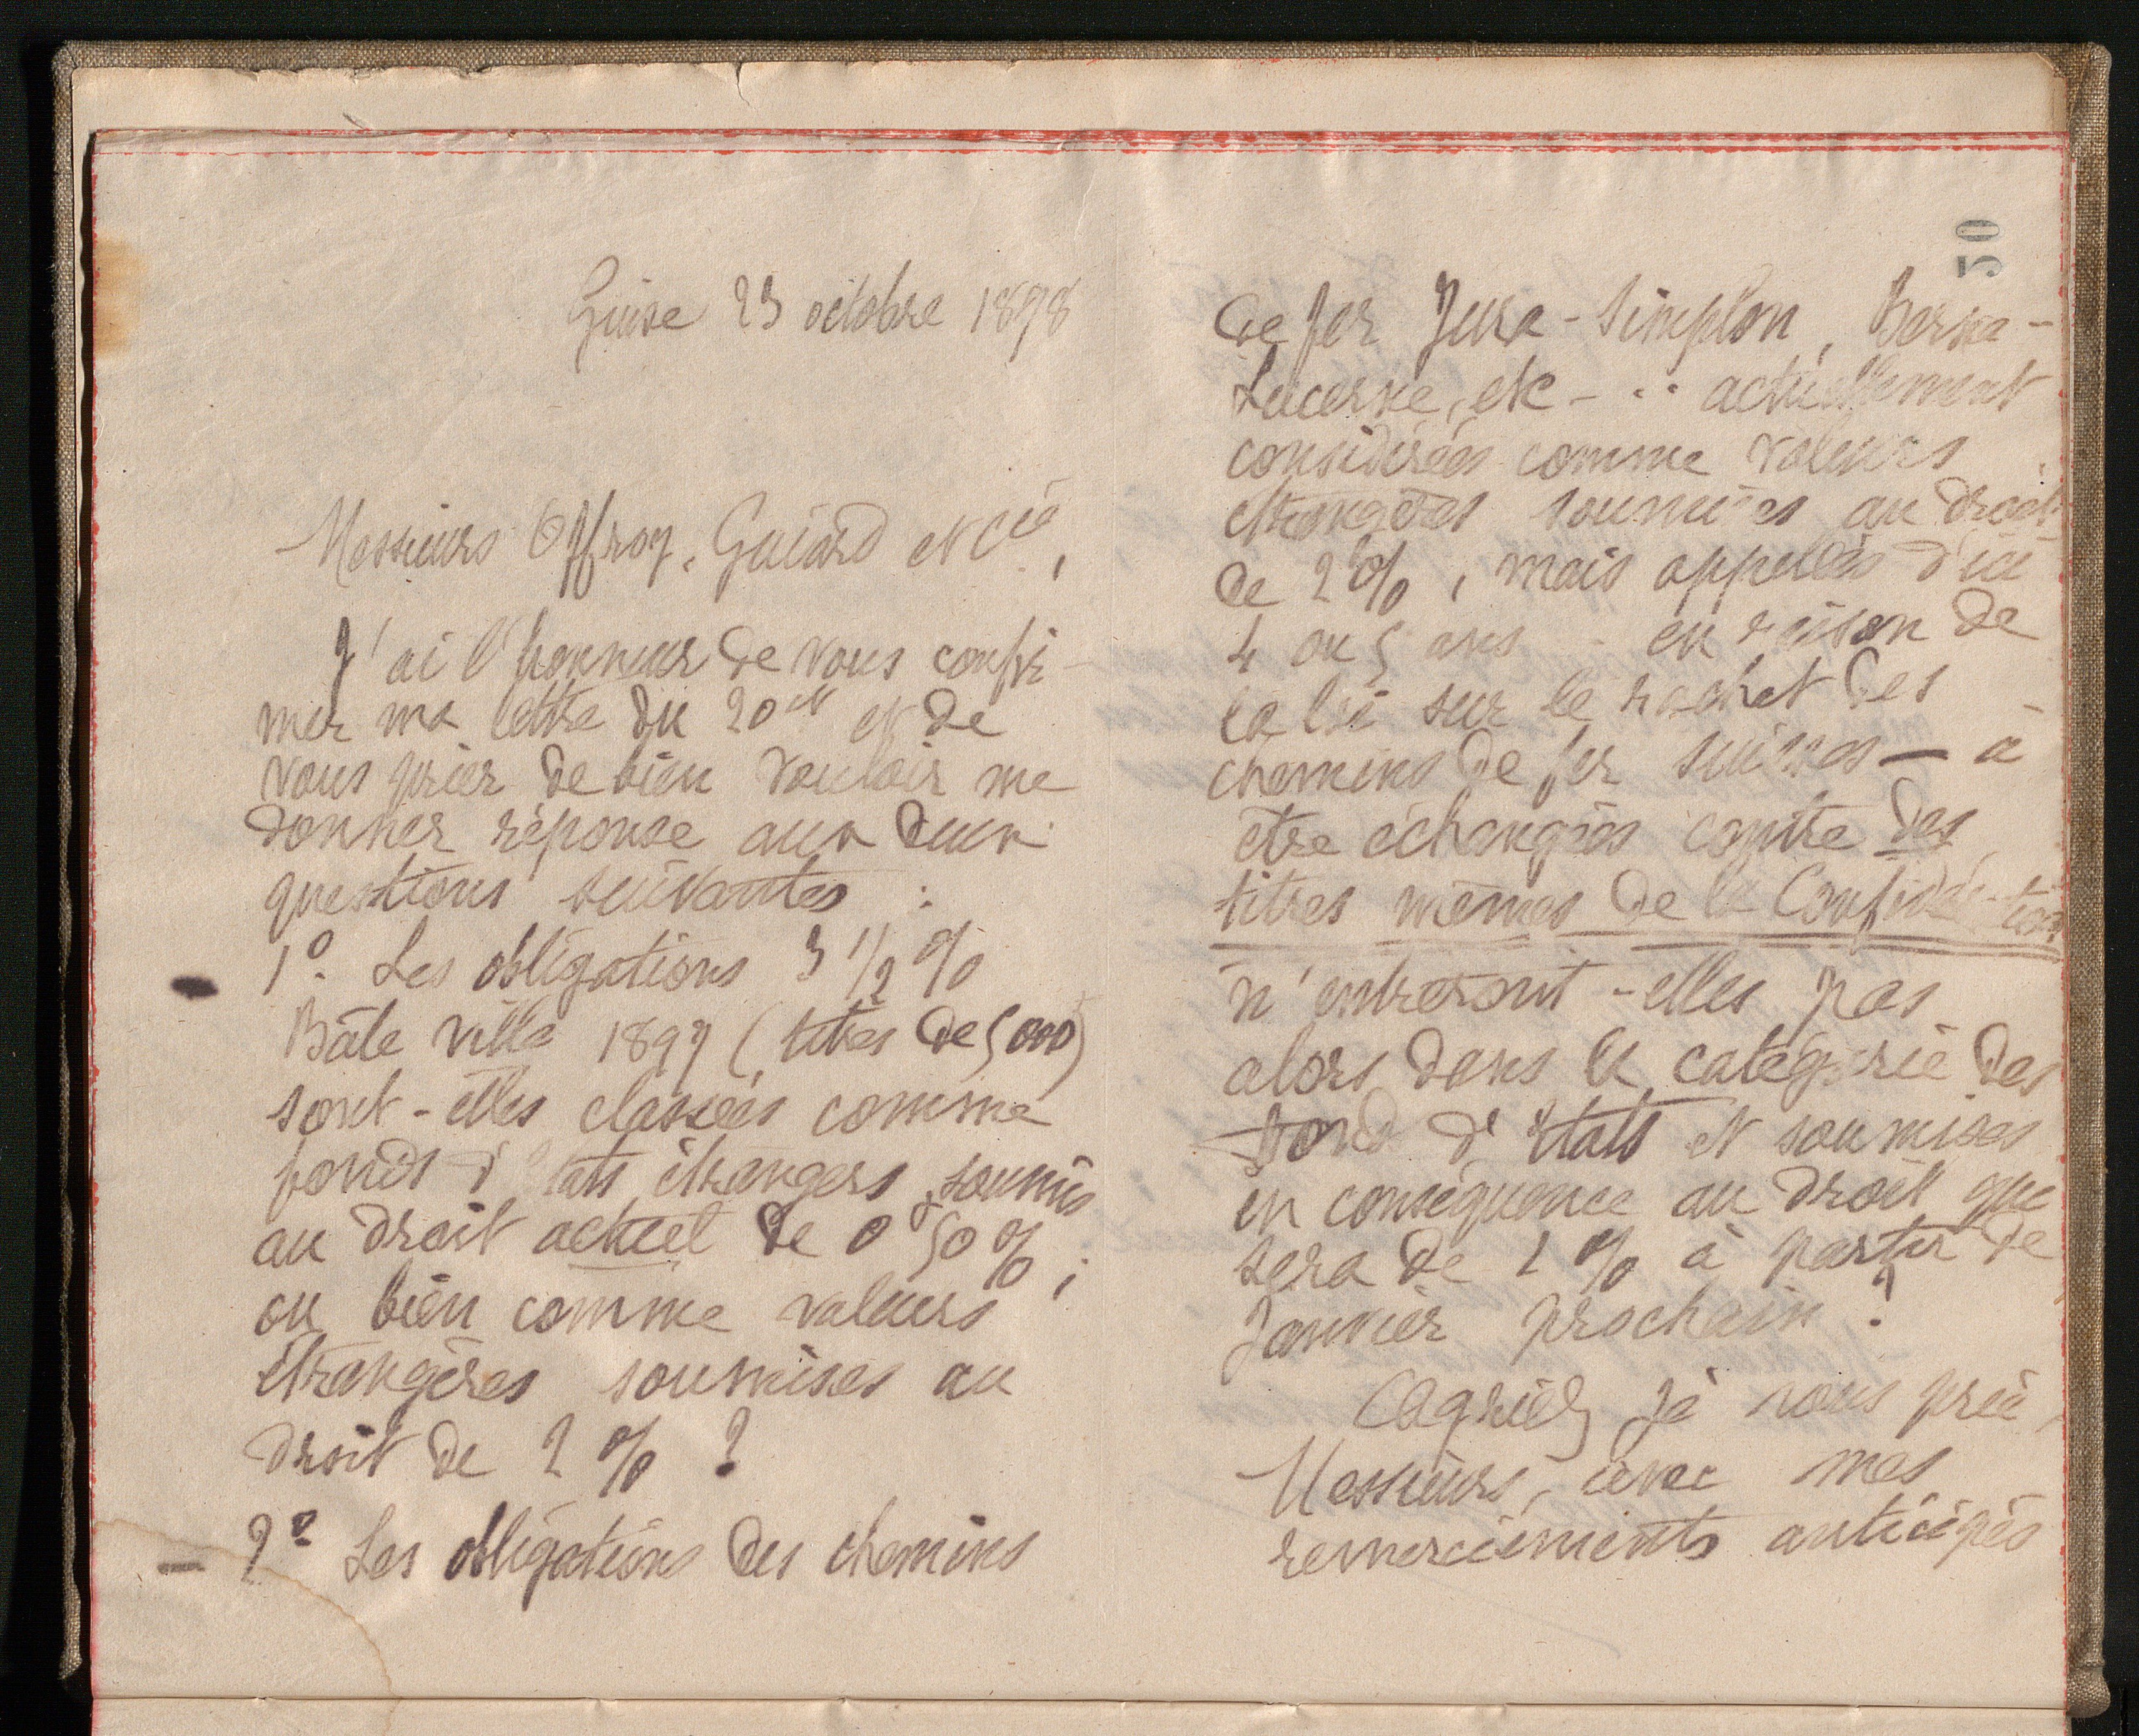 Guise 23 octobre 1898
Messieurs Offroy, Guiard et Cie,
J'ai l'honneur de vous confir-
mer ma lettre du 20 ct et de
vous prier de bien vouloir me
donner réponse aux deux
questions suivantes :
1º. Les obligations 3 1/2 %
Bâle ville 1897 (titres de 5000)
sont-elles classées comme
fonds d'états étrangers soumis
au droit actuel de 0f50 % ;
ou bien comme valeurs
étrangères soumises au
droit de 2 % ?
2º Les obligations des chemins
50
de fer Jura-Simplon, Berne-
Lucerne, etc - .. actuellement
considérées comme valeurs
étrangères soumises au droit
de 2 %, mais appelées d'ici
4 ou 5 ans - en raison de
la loi sur le rachet des
chemins de fer suisses — à
être échangées contre des
titres mêmes de la Confédé-tion
n'entreront-elles pas
alors dans la catégorie des
Fond d'états et soumises
en conséquence au droit que
sera de 1 % à partir de
Janvier prochain ?
Agréez je vous prie,
Messieurs, avec mes
remerciements anticipés